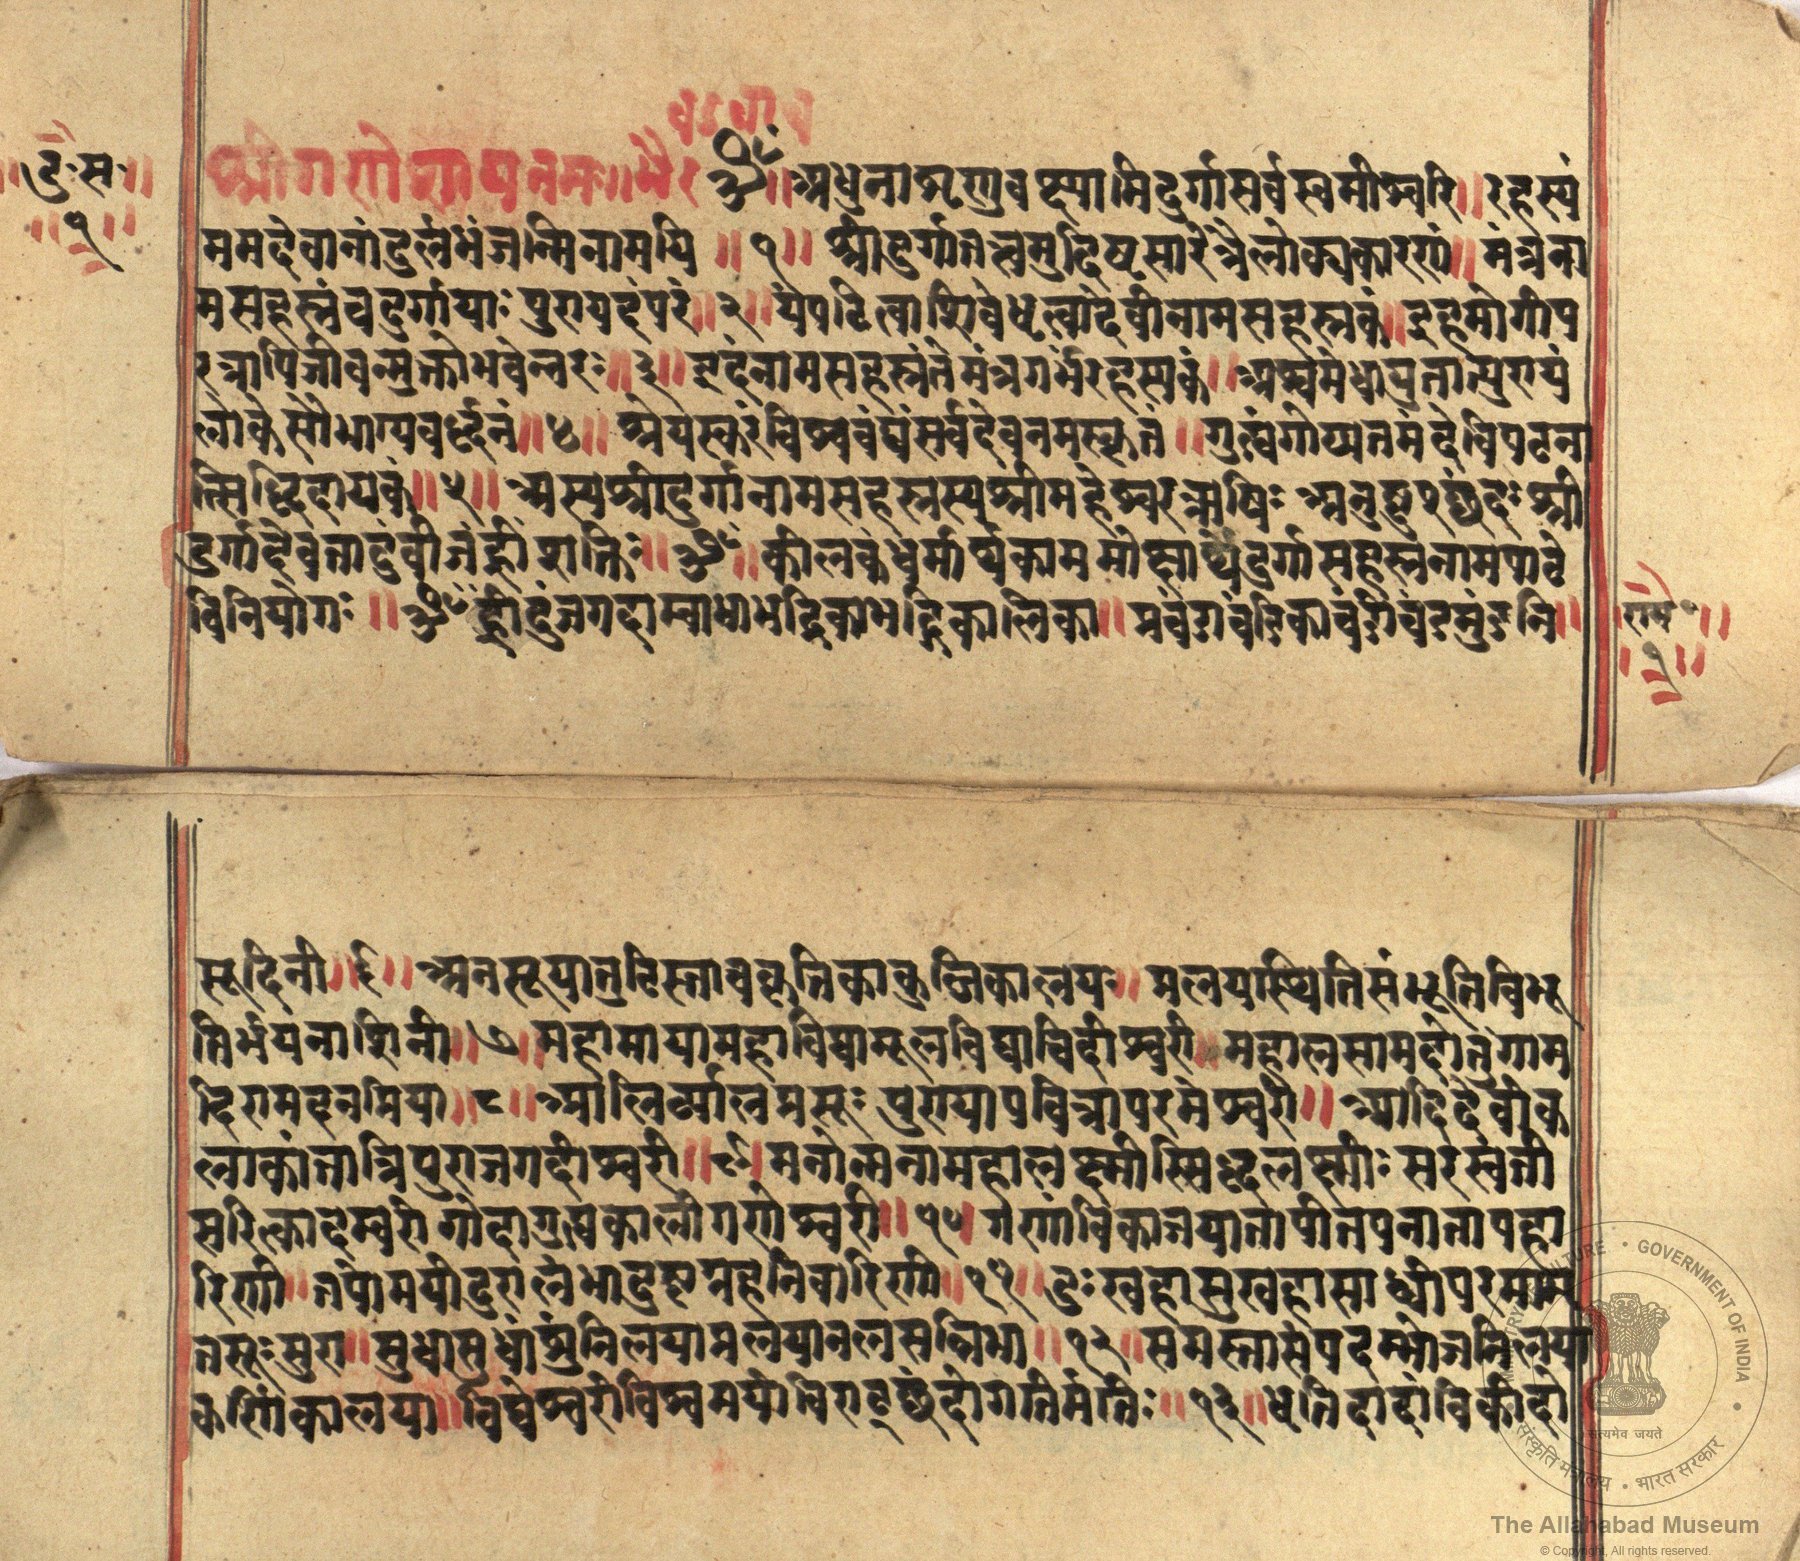 दुः स
१
श्रीगणेशायनमः॥ भैर
ॐ॥ अधुनाशृणुवक्ष्यामिदुर्गासर्वस्वमीश्वरि॥ रहस्यं
ममदेवानांदुर्लभंजन्मिनामयि॥ १॥ श्रीदुर्गातत्वमुद्दिष्टसारंत्रैलोक्यकारणं॥ मंत्रना
मसहस्रंचदुर्गायाः पुण्यदंपरं॥ २॥ यंपठित्वाशिवेधृत्वादेवीनामसहस्रकं॥ इहभोगीप
रत्रापिजीवन्मुक्तोभवेन्नरः॥ ३॥ इदंनामसहस्रंतेमंत्रगर्भंरहस्यकं॥ अश्वमेधायुतात्पुण्यं
लोकेसौभाग्यवर्द्धनं॥ ४॥ श्रेयस्करंविश्ववंद्यंसर्वदेवनमस्कृतं॥ गुह्यंगोप्यतमंदेविपठना
त्सिद्धिदायकं॥ ५॥ अस्यश्रीदुर्गानामसहस्रस्यश्रीमहेश्वरऋषिः अनुष्टुप्छंदः श्री
दुर्गादेवतादुंबीजंह्रींशक्तिः॥ ॐ॥ कीलकंधर्मार्थकाममोक्षार्थेदुर्गासहस्रनामपाठे
विनियोगः॥ ॐ ह्रींदुंजगदाम्बाद्याभद्रिकाभद्रकालिका॥ प्रचंडाचंडिकाचंडीचंडमुंडनि
रामः
१
सूदिनी॥ ६॥ अनसूयात्रुटिस्ताराकृत्तिकाकुब्जिकालयः॥ प्रलयास्थितिसंभूतिविभू
तिर्भयनाशिनी॥ ७॥ महामायामहाविद्यामूलविद्याचिदीश्वरी॥ महालसामदोत्तुंगाम
दिरामदनप्रिया॥ ८॥ आलिर्व्यालप्रसूः पुण्यापवित्रापरमेश्वरी॥ आदिदेवीक
लाकांतात्रिपुराजगदीश्वरी॥ ९॥ मनोन्मनामहालक्ष्मीस्सिद्धलक्ष्मीः सरस्वती
सरित्कादम्बरीगोदागुह्यकालीगणेश्वरी॥ १०॥ गणांबिकाजयातापीतपनातापहा
रिणी॥ तपोमयीदुरालंभादुष्टग्रहनिवारिणी॥ ११॥ दुःखहासुखहासाध्वीपरमामृ
तसूः सुरा॥ सुधासुधांशुनिलयाप्रलयानलसन्निभा॥ १२॥ समस्तासंपदम्भोजनिलया
कर्णिकालया॥ विद्येश्वरीविश्वमयीविराट्छंदोगतिर्मतिः॥ १३॥ धृतिदादांबिकीदो
MINISTRY OF CULTURE • GOVERNMENT OF INDIA
सत्यमेव जयते
संस्कृति मंत्रालय • भारत सरकार
The Allahabad Museum
© Copyright, All rights reserved.